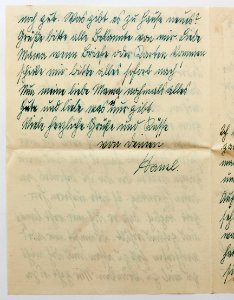 noch gut. Was gibt es zu Hause neues?
Grüße bitte alle Bekannte von mir liebe
Mama wenn Briefe oder Karten kommen
schicke mir bitte alles sofort nach!
Nun meine liebe Mama nochmals alles
Gute und liebe was nur gibt.
Viele herzliche Grüße und Küsse
von deinem
Hansl.